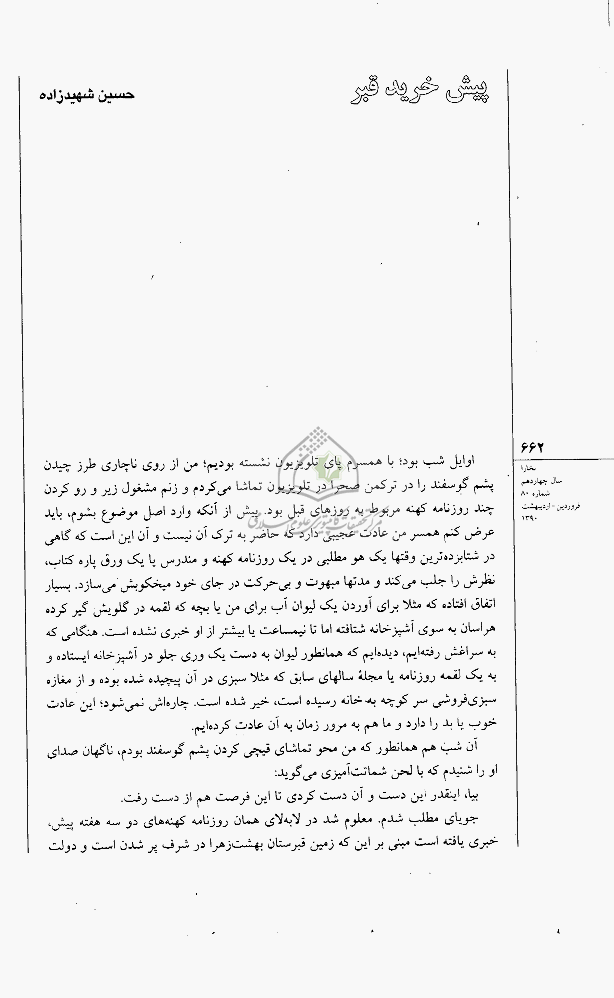 پیش خرید قبر
حسین شهیدزاده
۶۶۲
بخارا
سال چهاردهم
شماره ۸۰
فروردین - اردیبهشت
۱۳۹۰
اوایل شب بود؛ با همسرم پای تلویزیون نشسته بودیم؛ من از روی ناچاری طرز چیدن
پشم گوسفند را در ترکمن صحرا در تلویزیون تماشا می‌کردم و زنم مشغول زیر و رو کردن
چند روزنامه کهنه مربوط به روزهای قبل بود. پیش از آنکه وارد اصل موضوع بشوم، باید
عرض کنم همسر من عادت عجیبی دارد که حاضر به ترک آن نیست و آن این است که گاهی
در شتابزده‌ترین وقتها یک هو مطلبی در یک روزنامه کهنه و مندرس یا یک ورق پاره کتاب،
نظرش را جلب می‌کند و مدتها مبهوت و بی‌حرکت در جای خود میخکوبش می‌سازد. بسیار
اتفاق افتاده که مثلا برای آوردن یک لیوان آب برای من یا بچه که لقمه در گلویش گیر کرده
هراسان به سوی آشپزخانه شتافته اما تا نیمساعت یا بیشتر از او خبری نشده است. هنگامی که
به سراغش رفته‌ایم، دیده‌ایم که همانطور لیوان به دست یک وری جلو در آشپزخانه ایستاده و
به یک لقمه روزنامه یا مجلهٔ سالهای سابق که مثلا سبزی در آن پیچیده شده بوده و از مغازه
سبزی‌فروشی سر کوچه به خانه رسیده است، خیر شده است. چاره‌اش نمی‌شود؛ این عادت
خوب یا بد را دارد و ما هم به مرور زمان به آن عادت کرده‌ایم.
آن شب هم همانطور که من محو تماشای قیچی کردن پشم گوسفند بودم، ناگهان صدای
او را شنیدم که با لحن شماتت‌آمیزی می‌گوید:
بیا، اینقدر این دست و آن دست کردی تا این فرصت هم از دست رفت.
جویای مطلب شدم. معلوم شد در لابه‌لای همان روزنامه کهنه‌های دو سه هفته پیش،
خبری یافته است مبنی بر این که زمین قبرستان بهشت‌زهرا در شرف پر شدن است و دولت